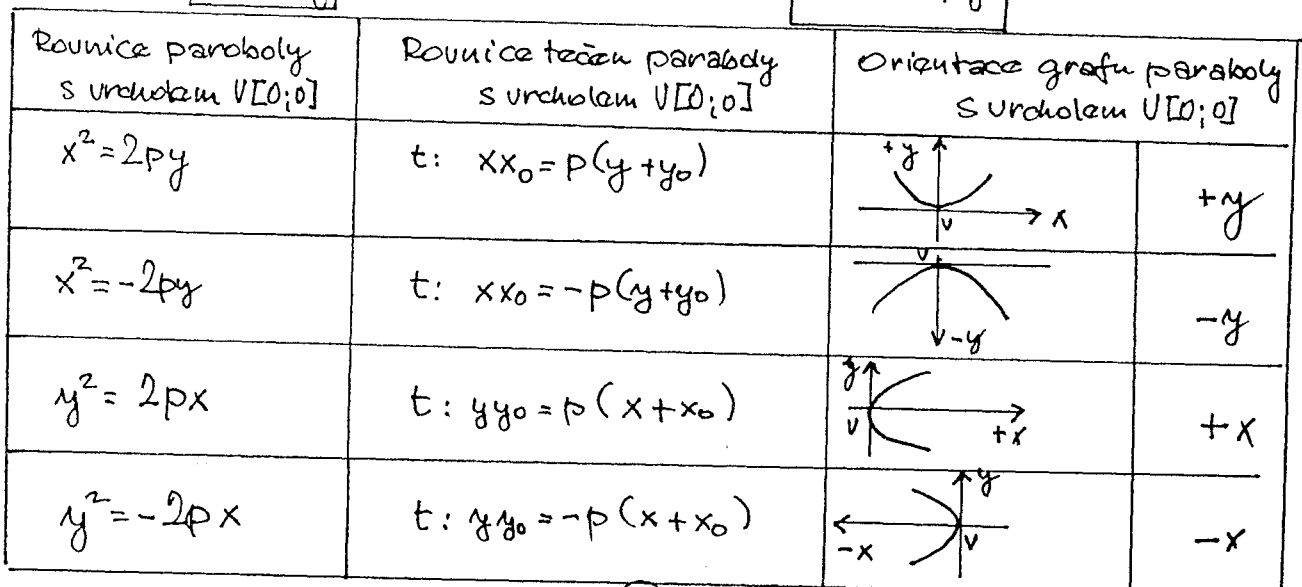 Rovnice paraboly
s vrcholem V[0;0]
Rovnice tečen paraboly
s vrcholem V[0;0]
Orientace grafu paraboly
s vrcholem V[0;0]
x²=2py
t: xx₀=p(y+y₀)
+y
x
V
+y
x²=-2py
t: xx₀=-p(y+y₀)
V
-y
-y
y²=2px
t: yy₀=p(x+x₀)
y
V
+x
+x
y²=-2px
t: yy₀=-p(x+x₀)
y
-x
V
-x